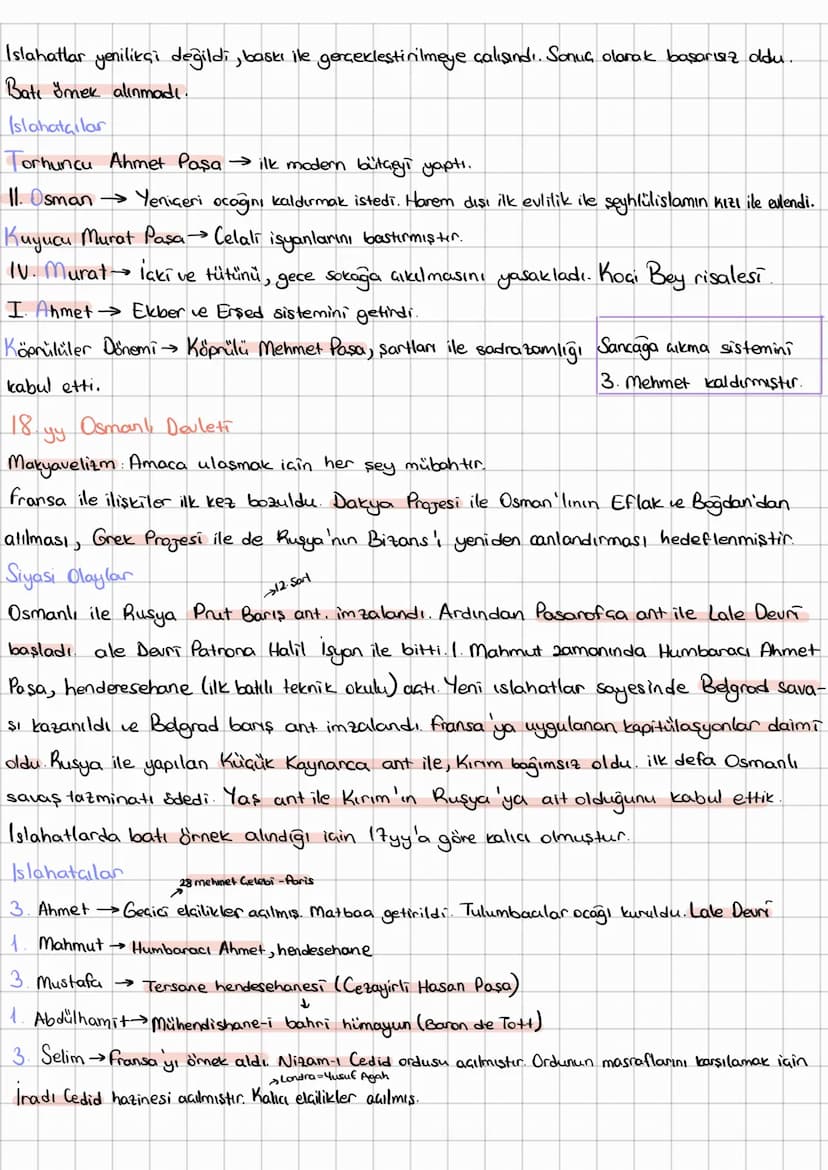 Islahatlar yenilikçi değildi, baskı ile gerçekleştirilmeye çalışındı. Sonuç olarak başarısız oldu.
Batı örnek alınmadı.
Islahatçılar
Torhuncu Ahmet Paşa → ilk modern bütçeyi yaptı.
II. Osman → Yeniçeri ocağını kaldırmak istedi. Harem dışı ilk evlilik ile şeyhlülislamın kızı ile evlendi.
Kuyucu Murat Paşa → Celali isyanlarını bastırmıştır.
IV. Murat → İçki ve tütünü, gece sokağa çıkılmasını yasakladı. Koçi Bey risalesi.
I. Ahmet → Ekber ve Erşed sistemini getirdi.
Köprülüler Dönemi → Köprülü Mehmet Paşa, şartları ile sadrazamlığı
kabul etti.
Sancağa çıkma sistemini
3. Mehmet kaldırmıştır.
18. yy Osmanlı Devleti
Makyavelizm: Amaca ulaşmak için her şey mübahtır.
Fransa ile ilişkiler ilk kez bozuldu. Dakya Projesi ile Osman'lının Eflak ve Boğdan'dan
atılması, Grek Projesi ile de Rusya'nın Bizans'ı yeniden canlandırması hedeflenmiştir.
Siyasi Olaylar
→12. şart
Osmanlı ile Rusya Prut Barış ant. imzalandı. Ardından Pasarofça ant ile Lale Devri
başladı. ale Devri Patrona Halil İsyan ile bitti. I. Mahmut zamanında Humbaracı Ahmet
Paşa, henderesehane (ilk batılı teknik okulu) açtı. Yeni ıslahatlar sayesinde Belgrad sava-
şı kazanıldı ve Belgrad barış ant imzalandı. Fransa'ya uygulanan kapitülasyonlar daimi
oldu. Rusya ile yapılan Küçük Kaynarca ant ile, Kırım bağımsız oldu. ilk defa Osmanlı
savaş tazminatı ödedi. Yaş ant ile Kırım'ın Rusya'ya ait olduğunu kabul ettik.
Islahatlarda batı örnek alındığı için 17yy'a göre kalıcı olmuştur.
Islahatçılar
28 mehmet Çelebi - Paris
3. Ahmet → Geçici elçilikler açılmış. Matbaa getirildi. Tulumbacılar ocağı kuruldu. Lale Devri
1. Mahmut → Humbaracı Ahmet, hendesehane
3. Mustafa → Tersane hendesehanesi (Cezayirli Hasan Paşa)
1. Abdülhamit → Mühendishane-i bahri hümayun (Baron de Tott)
3. Selim → Fransa'yı örnek aldı. Nizam-ı Cedid ordusu açılmıştır. Ordunun masraflarını karşılamak için
→Londra=Yusuf Agah
İradı Cedid hazinesi açılmıştır. Kalıcı elçilikler açılmış.